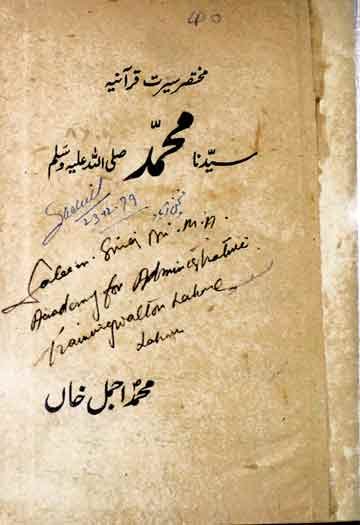 مختصر سیرت قرآنیہ
سیّدنا محمّد صلی اللہ علیہ وسلم
23.12.79
Saleem M.A.
Academy for Administrative
Training Walton Lahore
Lahore
محمد اجمل خاں